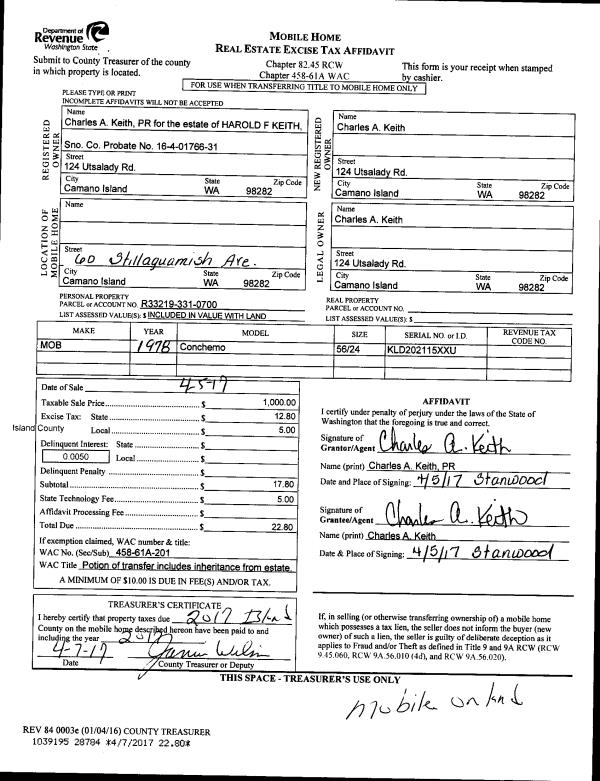 Department of
Revenue
Washington State
MOBILE HOME
REAL ESTATE EXCISE TAX AFFIDAVIT
Submit to County Treasurer of the county
in which property is located.
Chapter 82.45 RCW
Chapter 458-61A WAC
This form is your receipt when stamped
by cashier.
FOR USE WHEN TRANSFERRING TITLE TO MOBILE HOME ONLY
PLEASE TYPE OR PRINT
INCOMPLETE AFFIDAVITS WILL NOT BE ACCEPTED
REGISTERED
OWNER
Name
Charles A. Keith, PR for the estate of HAROLD F KEITH,
Sno. Co. Probate No. 16-4-01766-31
Street
124 Utsalady Rd.
City State Zip Code
Camano Island WA 98282
NEW REGISTERED
OWNER
Name
Charles A. Keith
Street
124 Utsalady Rd.
City State Zip Code
Camano Island WA 98282
LOCATION OF
MOBILE HOME
Name
Street
60 Stillaguamish Ave.
City State Zip Code
Camano Island WA 98282
LEGAL OWNER
Name
Charles A. Keith
Street
124 Utsalady Rd.
City State Zip Code
Camano Island WA 98282
PERSONAL PROPERTY
PARCEL or ACCOUNT NO. R33219-331-0700
LIST ASSESSED VALUE(S): $ INCLUDED IN VALUE WITH LAND
REAL PROPERTY
PARCEL or ACCOUNT NO.
LIST ASSESSED VALUE(S): $
MAKE YEAR MODEL SIZE SERIAL NO. or I.D. REVENUE TAX CODE NO.
MOB 1978 Conchemo 56/24 KLD202115XXU
Date of Sale 4-5-17
Taxable Sale Price $ 1,000.00
Excise Tax: State $ 12.80
Island County Local $ 5.00
Delinquent Interest: State $
0.0050 Local $
Delinquent Penalty $
Subtotal $ 17.80
State Technology Fee $ 5.00
Affidavit Processing Fee $
Total Due $ 22.80
If exemption claimed, WAC number & title:
WAC No. (Sec/Sub) 458-61A-201
WAC Title Potion of transfer includes inheritance from estate.
A MINIMUM OF $10.00 IS DUE IN FEE(S) AND/OR TAX.
AFFIDAVIT
I certify under penalty of perjury under the laws of the State of
Washington that the foregoing is true and correct.
Signature of
Grantor/Agent Charles A. Keith
Name (print) Charles A. Keith, PR
Date and Place of Signing: 4/5/17 Stanwood
Signature of
Grantee/Agent Charles A. Keith
Name (print) Charles A. Keith
Date & Place of Signing: 4/5/17 Stanwood
TREASURER'S CERTIFICATE
I hereby certify that property taxes due 2017 Island
County on the mobile home described hereon have been paid to and
including the year 2017
4-7-17
Date County Treasurer or Deputy
If, in selling (or otherwise transferring ownership of) a mobile home
which possesses a tax lien, the seller does not inform the buyer (new
owner) of such a lien, the seller is guilty of deliberate deception as it
applies to Fraud and/or Theft as defined in Title 9 and 9A RCW (RCW
9.45.060, RCW 9A.56.010 (4d), and RCW 9A.56.020).
THIS SPACE - TREASURER'S USE ONLY
mobile on land
REV 84 0003e (01/04/16) COUNTY TREASURER
1039195 28784 *4/7/2017 22.80*